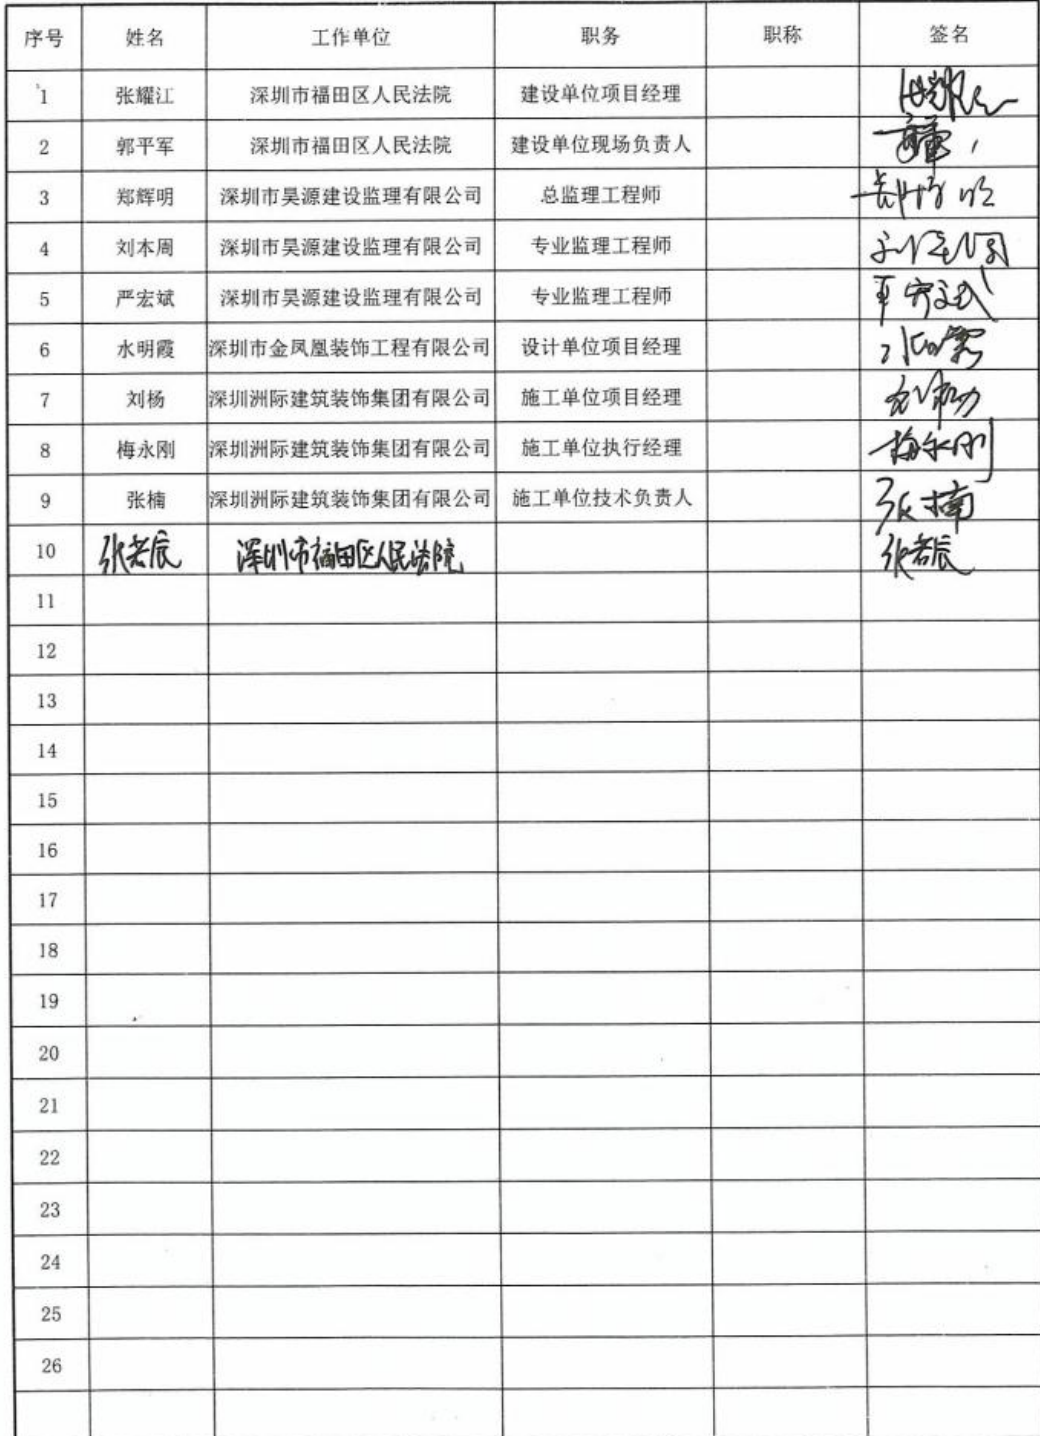 序号 姓名 工作单位 职务 职称 签名
1 张耀江 深圳市福田区人民法院 建设单位项目经理
2 郭平军 深圳市福田区人民法院 建设单位现场负责人
3 郑辉明 深圳市昊源建设监理有限公司 总监理工程师
4 刘本周 深圳市昊源建设监理有限公司 专业监理工程师 刘本周
5 严宏斌 深圳市昊源建设监理有限公司 专业监理工程师 严宏斌
6 水明霞 深圳市金凤凰装饰工程有限公司 设计单位项目经理 水明霞
7 刘杨 深圳洲际建筑装饰集团有限公司 施工单位项目经理
8 梅永刚 深圳洲际建筑装饰集团有限公司 施工单位执行经理 梅永刚
9 张楠 深圳洲际建筑装饰集团有限公司 施工单位技术负责人 张楠
10 张若辰 深圳市福田区人民法院 张若辰
11
12
13
14
15
16
17
18
19
20
21
22
23
24
25
26